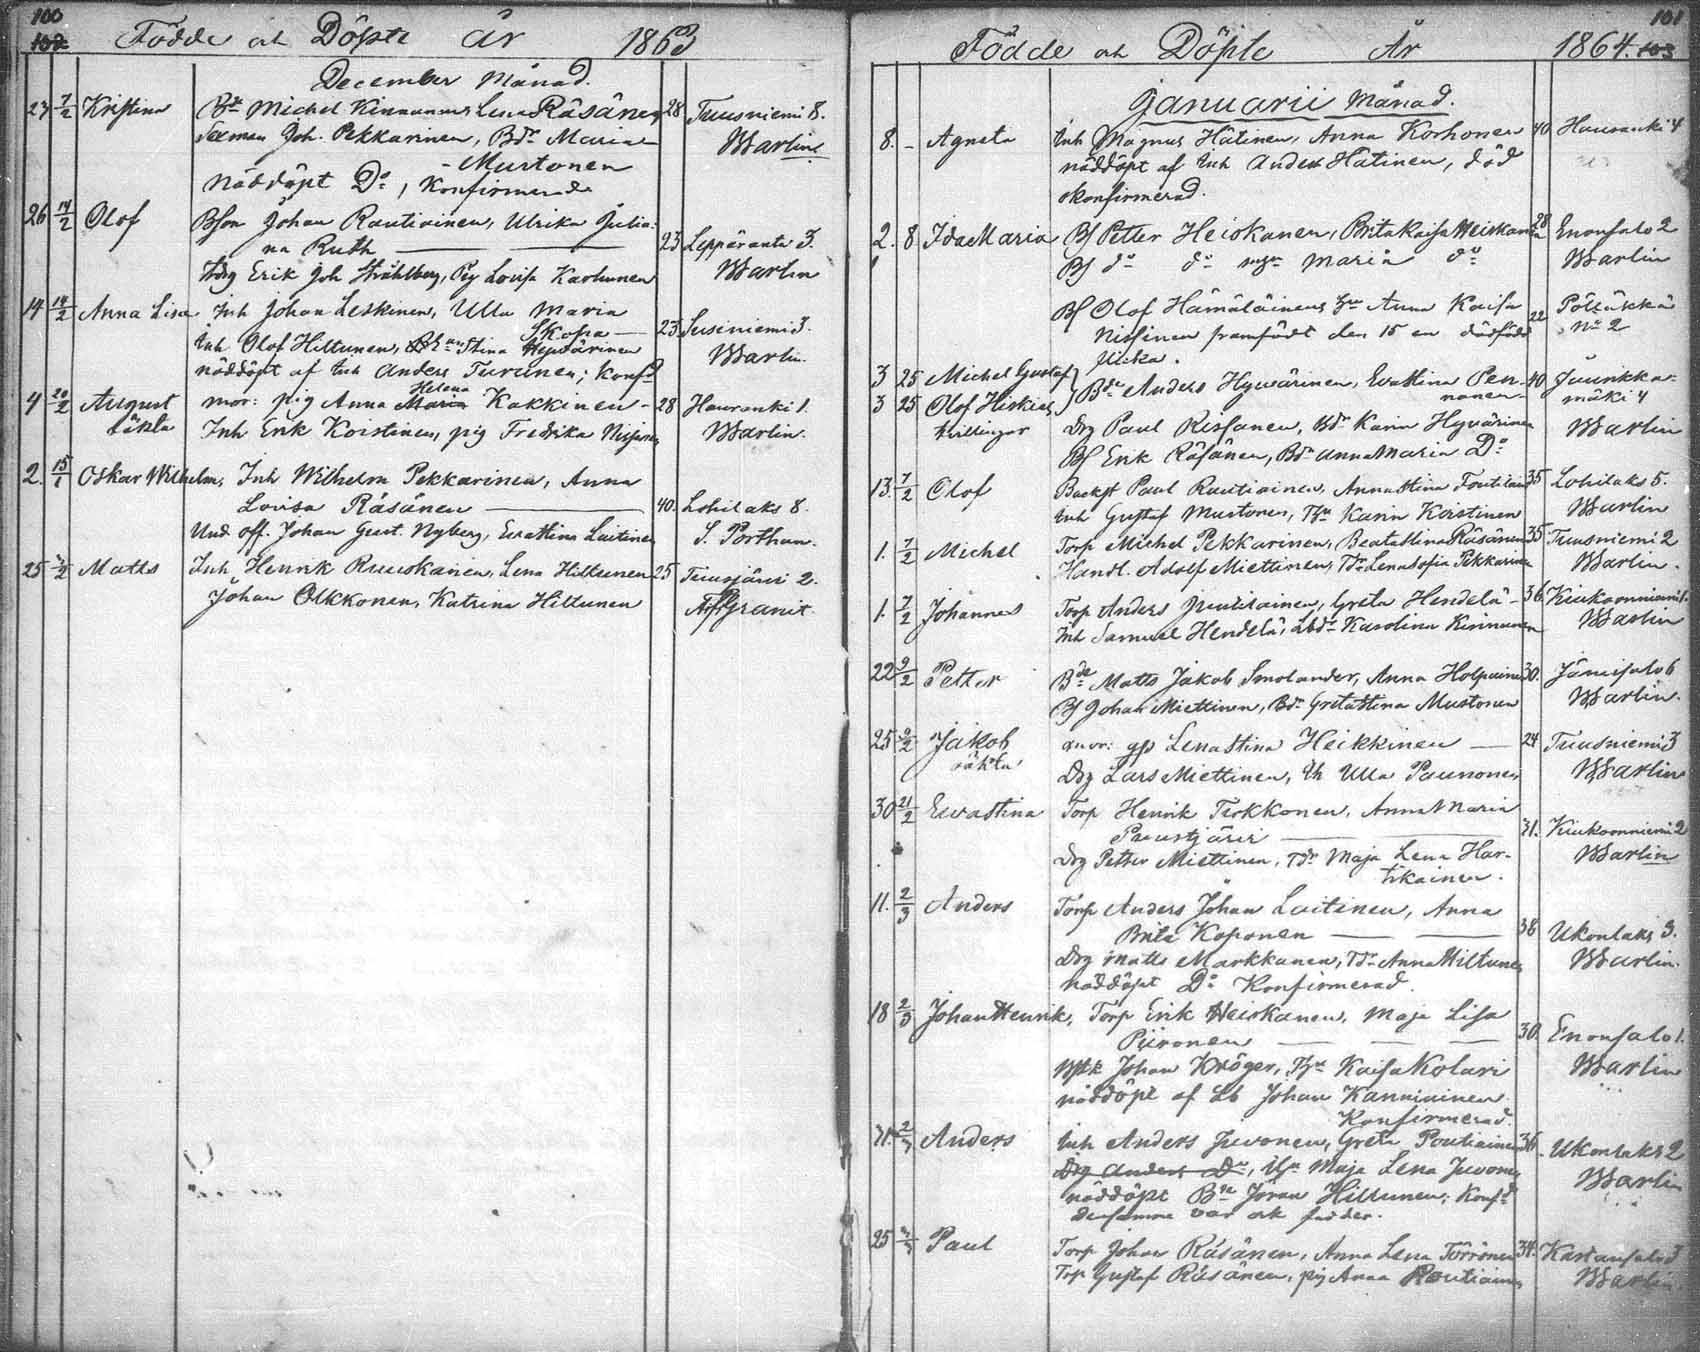 100
102
Födde och Döpte år 1863
December Månad.
23 7/2 Kristina Bde Michel Kinnunen, Lena Räsänen 28 Tuusniemi 8.
Seeman Joh. Pekkarinen, Bdr Maria Warlin
Mustonen
Nöddöpt Do, Konfirmerad
26 14/2 Olof Bson Johan Rautiainen, Ulrika Julia-
na Ruth 23 Leppäranta 3.
Ddg Erik Joh Stråhlberg, Pig Lovisa Karhunen Warlin
14 14/2 Anna Lisa Inh Johan Leskinen, Ulla Maria
Skopa 23 Susiniemi 3.
Inh Olof Hiltunen, Stina Hyvärinen Warlin.
nöddöpt af Inh Anders Turunen; Konfd
4 20/2 August mor: pig Anna Maria Helena Kakkinen 28 Hauranki 1.
oäkta Inh Erik Korstinen, pig Fredrika Nissinen Warlin.
2. 15/1 Oskar Wilhelm, Inh Wilhelm Pekkarinen, Anna
Lovisa Räsänen 40. Lohilaks 8.
Und. off. Johan Gust. Nyberg, Evastina Laitinen S. Porthan.
25 Matts Inh Henrik Ruuskanen, Lena Hiltunen 25 Tuusjärvi 2.
Johan Olkkonen, Katrina Hiltunen Granit.
101
Födde och Döpte År 1864. 103
Januarii Månad.
8. - Agneta Inh Magnus Hätinen, Anna Korhonen 40 Hauranki 4
nöddöpt af Inh Anders Hätinen, död
okonfirmerad.
2. 8 Ida Maria Bs Petter Heiskanen, Brita Kaisa Heiskanen 28 Enonsalo 2
Bs do do Maria do Warlin
Bs Olof Hämäläinens hu Anna Kaisa 22 Pölläkkä
Nissinen framfödt den 15 en dödfödd No 2
flicka.
3 25 Michel Gustaf Bde Anders Hyvärinen, Evastina Pen- 40 Juurikka-
nanen mäki 4
3 25 Olof Hiskias Drg Paul Rissanen, Bdr Karin Hyvärinen Warlin
tvillingar Bs Erik Räsänen, Bdr Anna Maria Do
13. 7/2 Olof Backst Paul Rautiainen, Annastina Toutilain 35 Lohilaks 5.
Inh Gustaf Mustonen, Karin Korstinen Warlin
1. 7/2 Michel Torp Michel Pekkarinen, Beatastina Räsänen 35 Tuusniemi 2
Handl. Adolf Miettinen, Tdr Lena Sofia Pekkarinen Warlin.
1. 7/2 Johannes Torp Anders Juutilainen, Greta Hendelä 36. Kiukoonniemi 1.
Inh Samuel Hendelä, Karolina Kinnunen Warlin
22 9/2 Petter Bde Matts Jakob Smolander, Anna Holpainen 30. Jänissalo 6
Bs Johan Miettinen, Bdr Gretastina Mustonen Warlin.
25 9/2 Jakob mor: Lenastina Heikkinen 24 Tuusniemi 3
oäkta Drg Lars Miettinen, Ulla Paunonen Warlin
30 21/2 Evastina Torp Henrik Tirkkonen, Anna Maria
31. Kiukoonniemi 2
Drg Petter Miettinen, Tdr Maja Lena Har- Warlin
tikainen.
11. 2/3 Anders Torp Anders Johan Laitinen, Anna
Brita Koponen 38 Ukonlaks 3.
Drg Matts Markkanen, Tdr Anna Hiltunen Warlin.
nöddöpt Do Konfirmerad.
18 2/3 Johan Henrik, Torp Erik Heiskanen, Maja Lisa
Piironen 30. Enonsalo 1.
Johan Kröger, Kaisa Kolari Warlin
nöddöpt af Johan Kanniainen
Konfirmerad.
31. 2/3 Anders Inh Anders Juvonen, Greta Poutiainen 36 Ukonlaks 2
Drg Anders Do, Maja Lena Juvonen Warlin
nöddöpt Bde Jöran Hiltunen; Konfd
densamme var ock fadder.
25 Paul Torp Johan Räsänen, Anna Lena Törrönen 34. Kartansalo 3
Torp Gustaf Räsänen, pig Anna Routiainen Warlin.